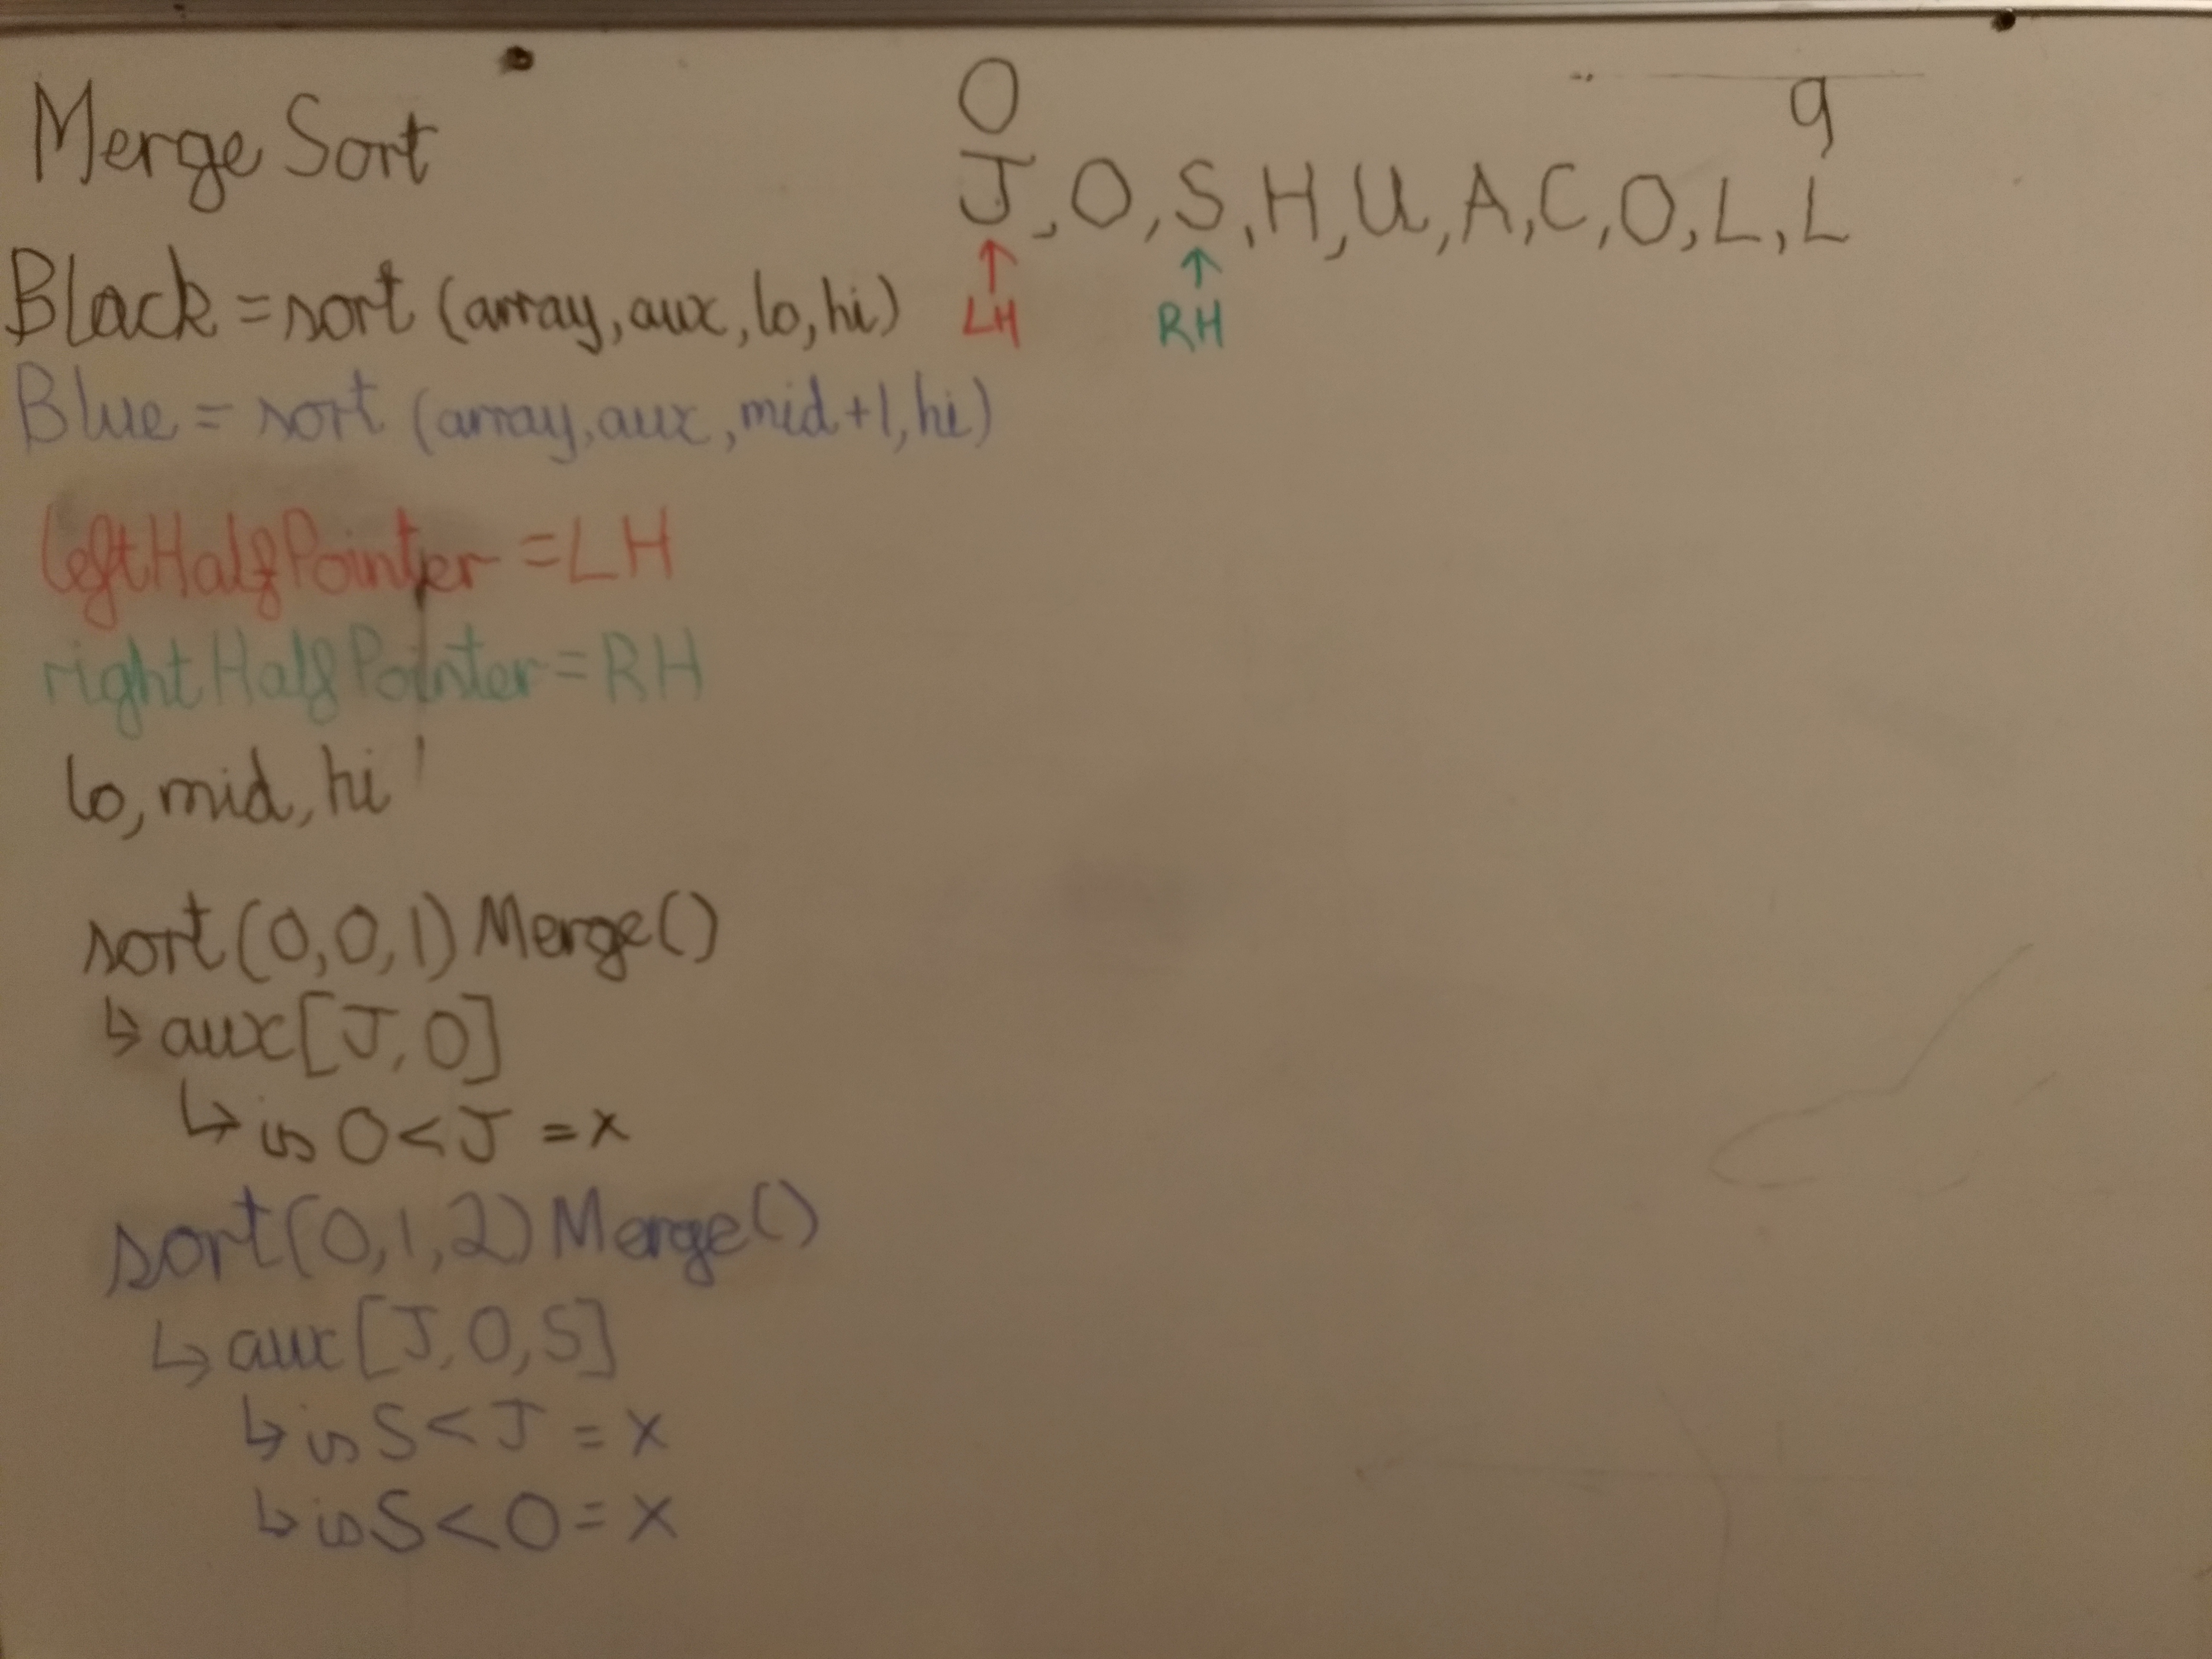 Merge Sort
0 9
J, O, S, H, U, A, C, O, L, L
LH RH
Black = sort (array, aux, lo, hi)
Blue = sort (array, aux, mid+1, hi)
leftHalfPointer = LH
rightHalfPointer = RH
lo, mid, hi
sort(0,0,1) Merge()
↳ aux[J, O]
↳ is O < J = x
sort(0,1,2) Merge()
↳ aux[J, O, S]
↳ is S < J = x
↳ is S < O = x